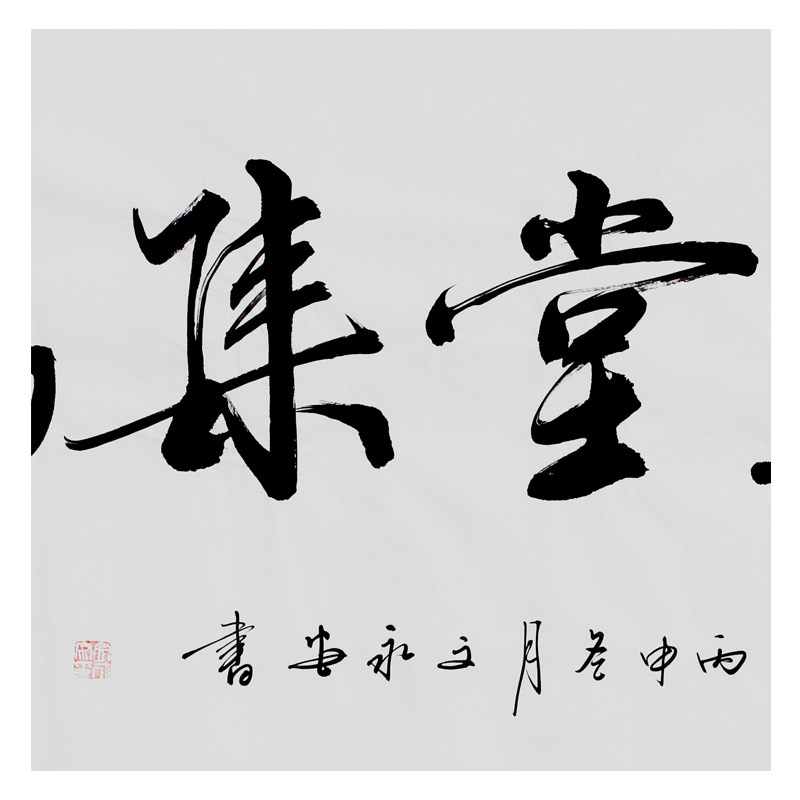 堂集
丙申冬月文永安書